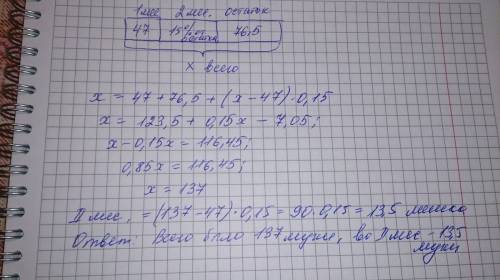 1 мес 2 мес. остаток
47 15% остатка 76,5
x всего
x = 47 + 76,5 + (x - 47) · 0,15
x = 123,5 + 0,15x - 7,05;
x - 0,15x = 116,45;
0,85x = 116,45;
x = 137
II мес, = (137 - 47) · 0,15 = 90 · 0,15 = 13,5 мешка
Ответ: Всего было 137 муки, во II мес - 13,5
муки